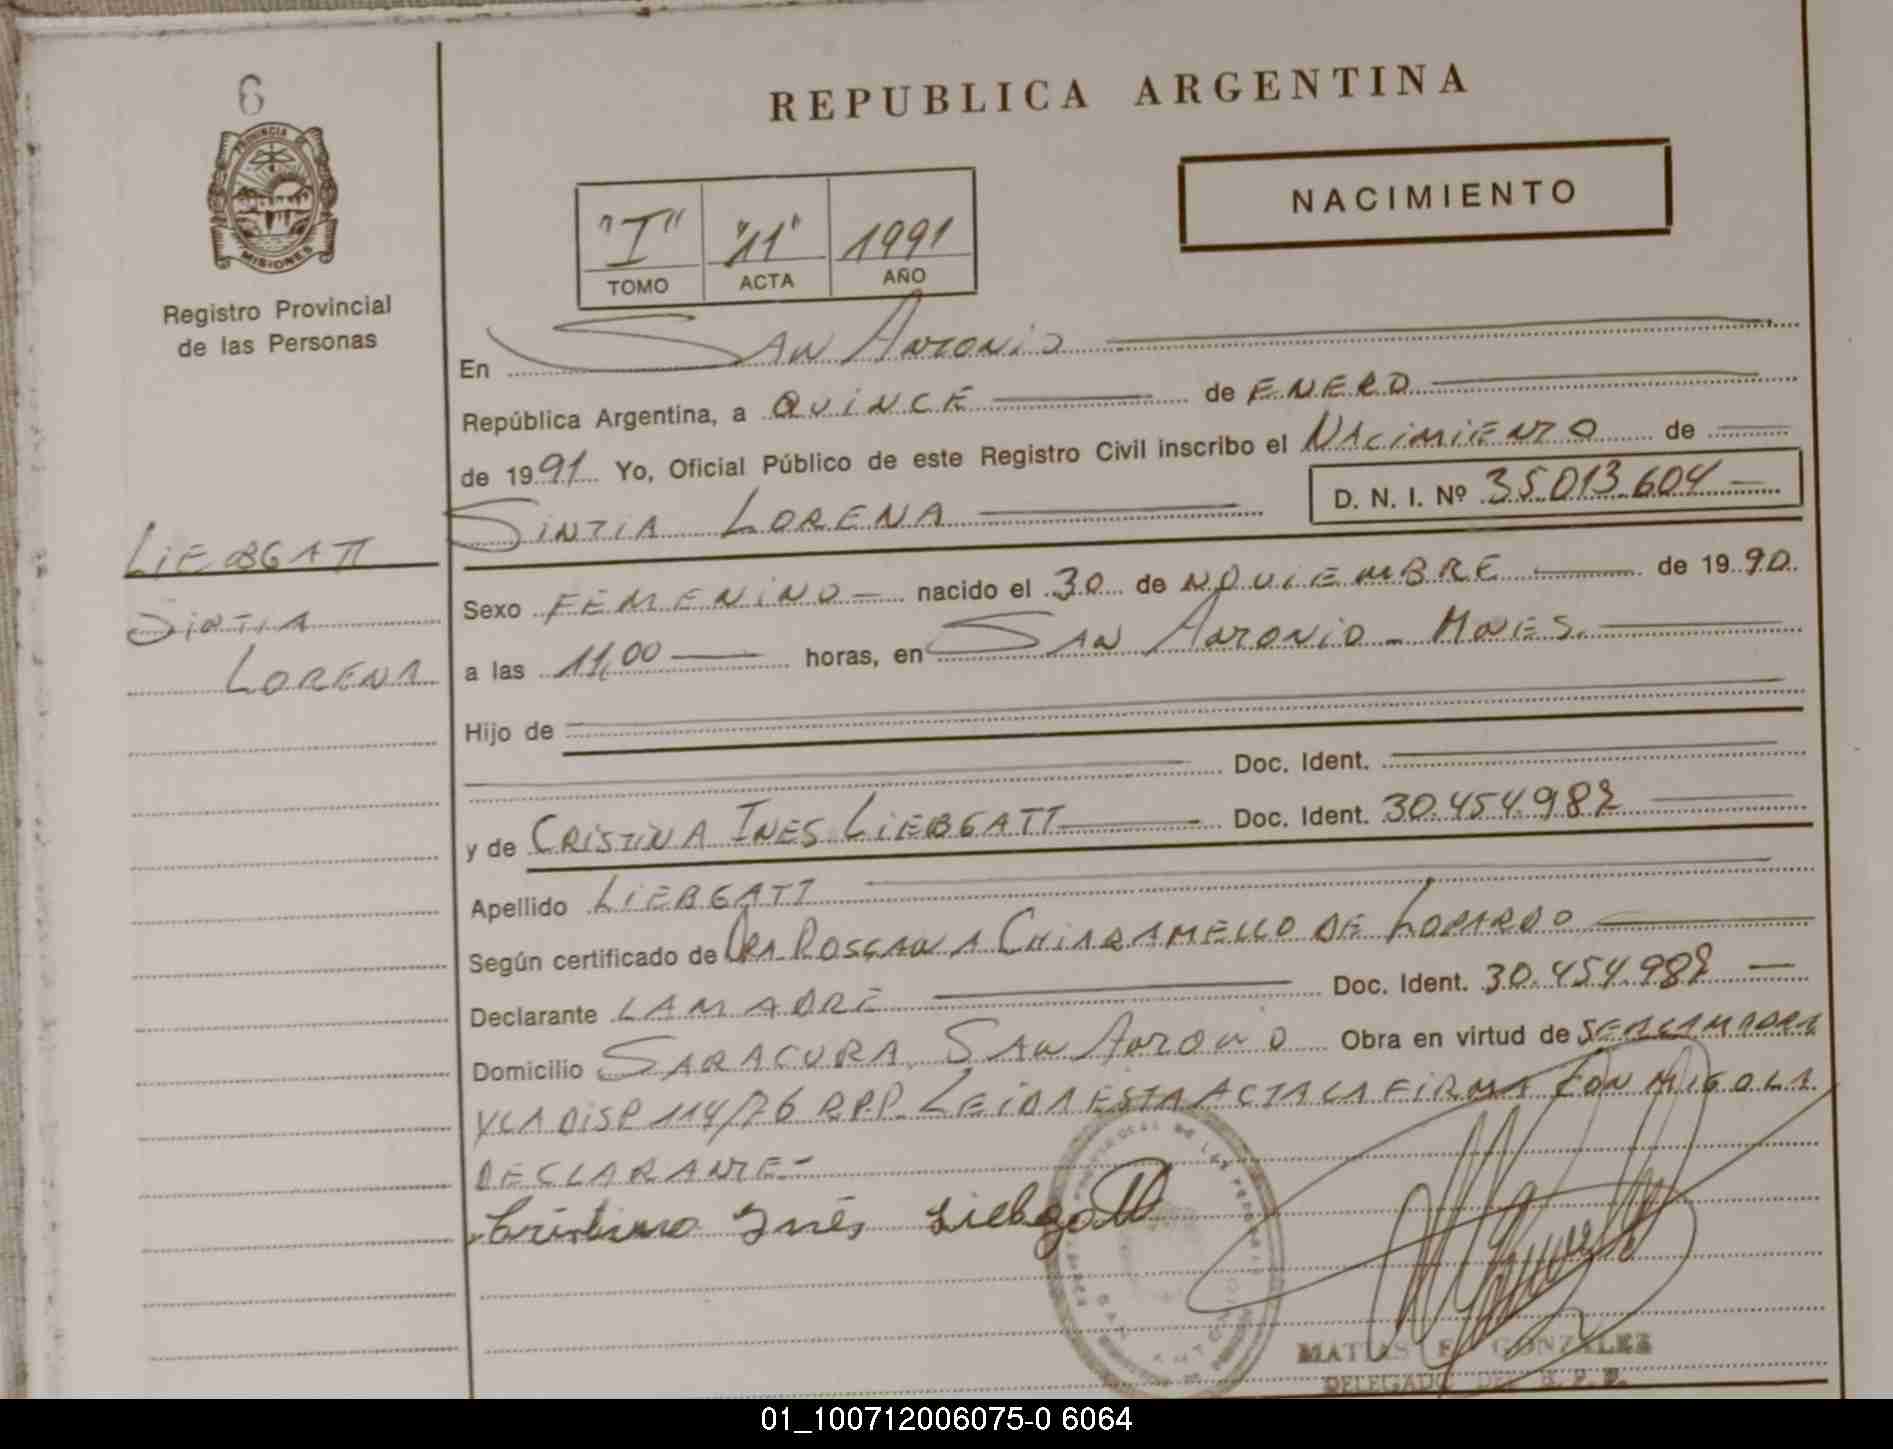 6
PROVINCIA DE
MISIONES
Registro Provincial
de las Personas
LIEBGATT
SINTIA
LORENA
REPUBLICA ARGENTINA
NACIMIENTO
"I" "11" 1991
TOMO ACTA AÑO
En SAN ANTONIO
República Argentina, a QUINCE de ENERO
de 1991 Yo, Oficial Público de este Registro Civil inscribo el NACIMIENTO de
SINTIA LORENA D. N. I. Nº 35.013.604
Sexo FEMENINO nacido el 30 de NOVIEMBRE de 1990.
a las 11,00 horas, en SAN ANTONIO - MNES.
Hijo de
Doc. Ident.
y de CRISTINA INES LIEBGATT Doc. Ident. 30.454.982
Apellido LIEBGATT
Según certificado de DRA CHIARAMELLO DE LOPARDO
Declarante LA MADRE Doc. Ident. 30.454.982
Domicilio SARACURA, SAN ANTONIO Obra en virtud de SER LA MADRE
Y LA DISP 114/76 RPP. LEIDA ESTA ACTA LA FIRMA CON MIGO LA
DECLARANTE-
Cristina Inés Liebgatt
SAN ANTONIO
MATIAS F. GONZALEZ
DELEGADO DEL R. P. P.
01_100712006075-0 6064